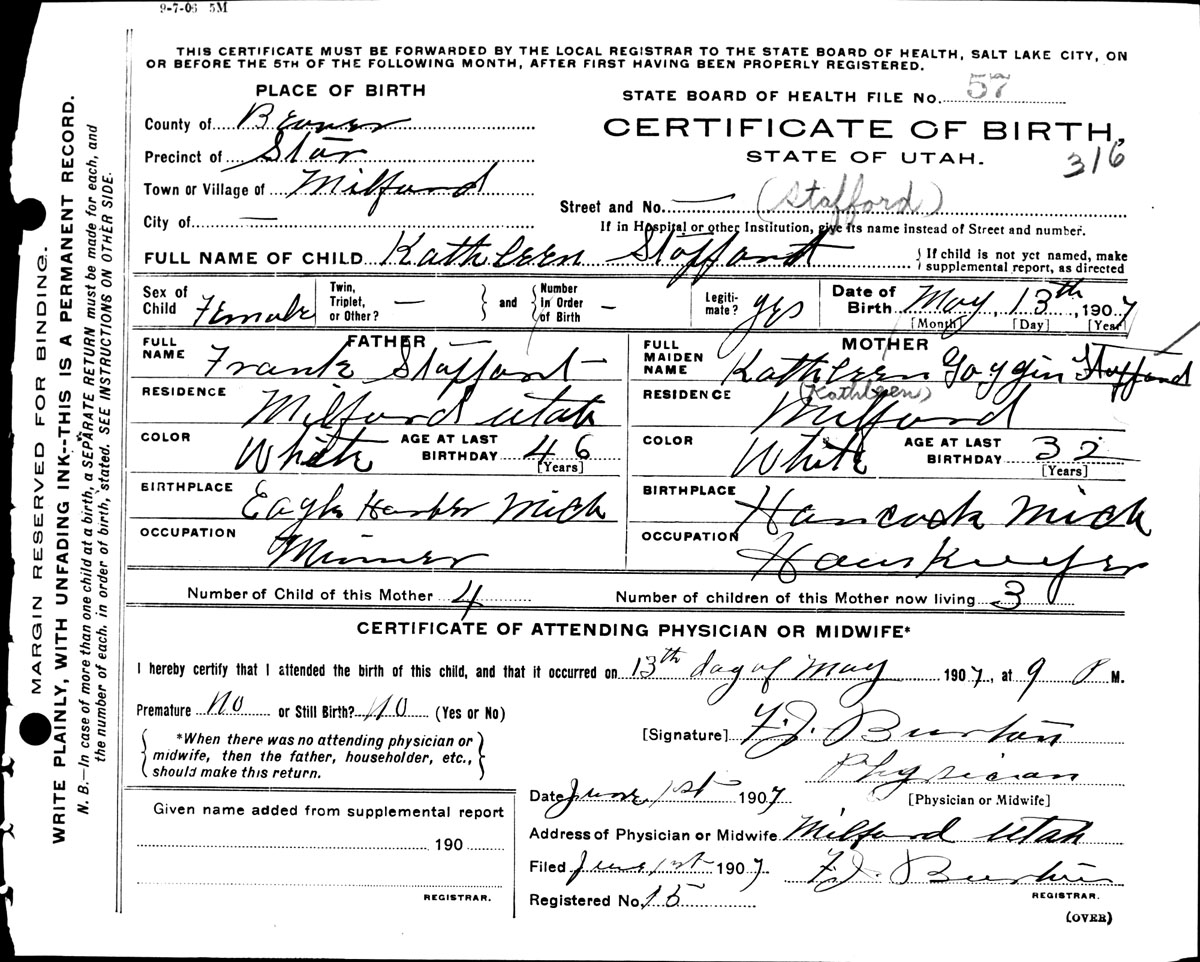 9-7-06 5M
THIS CERTIFICATE MUST BE FORWARDED BY THE LOCAL REGISTRAR TO THE STATE BOARD OF HEALTH, SALT LAKE CITY, ON
OR BEFORE THE 5TH OF THE FOLLOWING MONTH, AFTER FIRST HAVING BEEN PROPERLY REGISTERED.
PLACE OF BIRTH
STATE BOARD OF HEALTH FILE No. 57
County of Beaver
CERTIFICATE OF BIRTH,
Precinct of Star
STATE OF UTAH.
316
Town or Village of Milford
Street and No. — (Stafford)
City of —
If in Hospital or other Institution, give its name instead of Street and number.
FULL NAME OF CHILD Kathleen Staffort
If child is not yet named, make
supplemental report, as directed
Sex of Child Female
Twin, Triplet, or Other? —
and
Number in Order of Birth —
Legiti-mate? yes
Date of Birth May, 13th, 1907
[Month] [Day] [Year]
FATHER
FULL NAME Frank Staffort
RESIDENCE Milford Utah
COLOR White
AGE AT LAST BIRTHDAY 46
[Years]
BIRTHPLACE Eagle Harber Mich
OCCUPATION Minner
MOTHER
FULL MAIDEN NAME Kathleen Goggin Stafford
(Kathleen)
RESIDENCE Milford
COLOR White
AGE AT LAST BIRTHDAY 32
[Years]
BIRTHPLACE Hancock Mich
OCCUPATION Houskeeper
Number of Child of this Mother 4
Number of children of this Mother now living 3
CERTIFICATE OF ATTENDING PHYSICIAN OR MIDWIFE*
I hereby certify that I attended the birth of this child, and that it occurred on 13th day of May 1907, at 9 P M.
Premature No or Still Birth? No (Yes or No)
*When there was no attending physician or
midwife, then the father, householder, etc.,
should make this return.
[Signature] F. J. Burton
Physician
[Physician or Midwife]
Date June 1st 1907
Given name added from supplemental report
190
REGISTRAR.
Address of Physician or Midwife Milford Utah
Filed June 1st 1907 F. J. Burton
REGISTRAR.
Registered No. 15
(OVER)
MARGIN RESERVED FOR BINDING.
WRITE PLAINLY, WITH UNFADING INK--THIS IS A PERMANENT RECORD.
N. B.—In case of more than one child at a birth, a SEPARATE RETURN must be made for each, and
the number of each, in order of birth, stated. SEE INSTRUCTIONS ON OTHER SIDE.